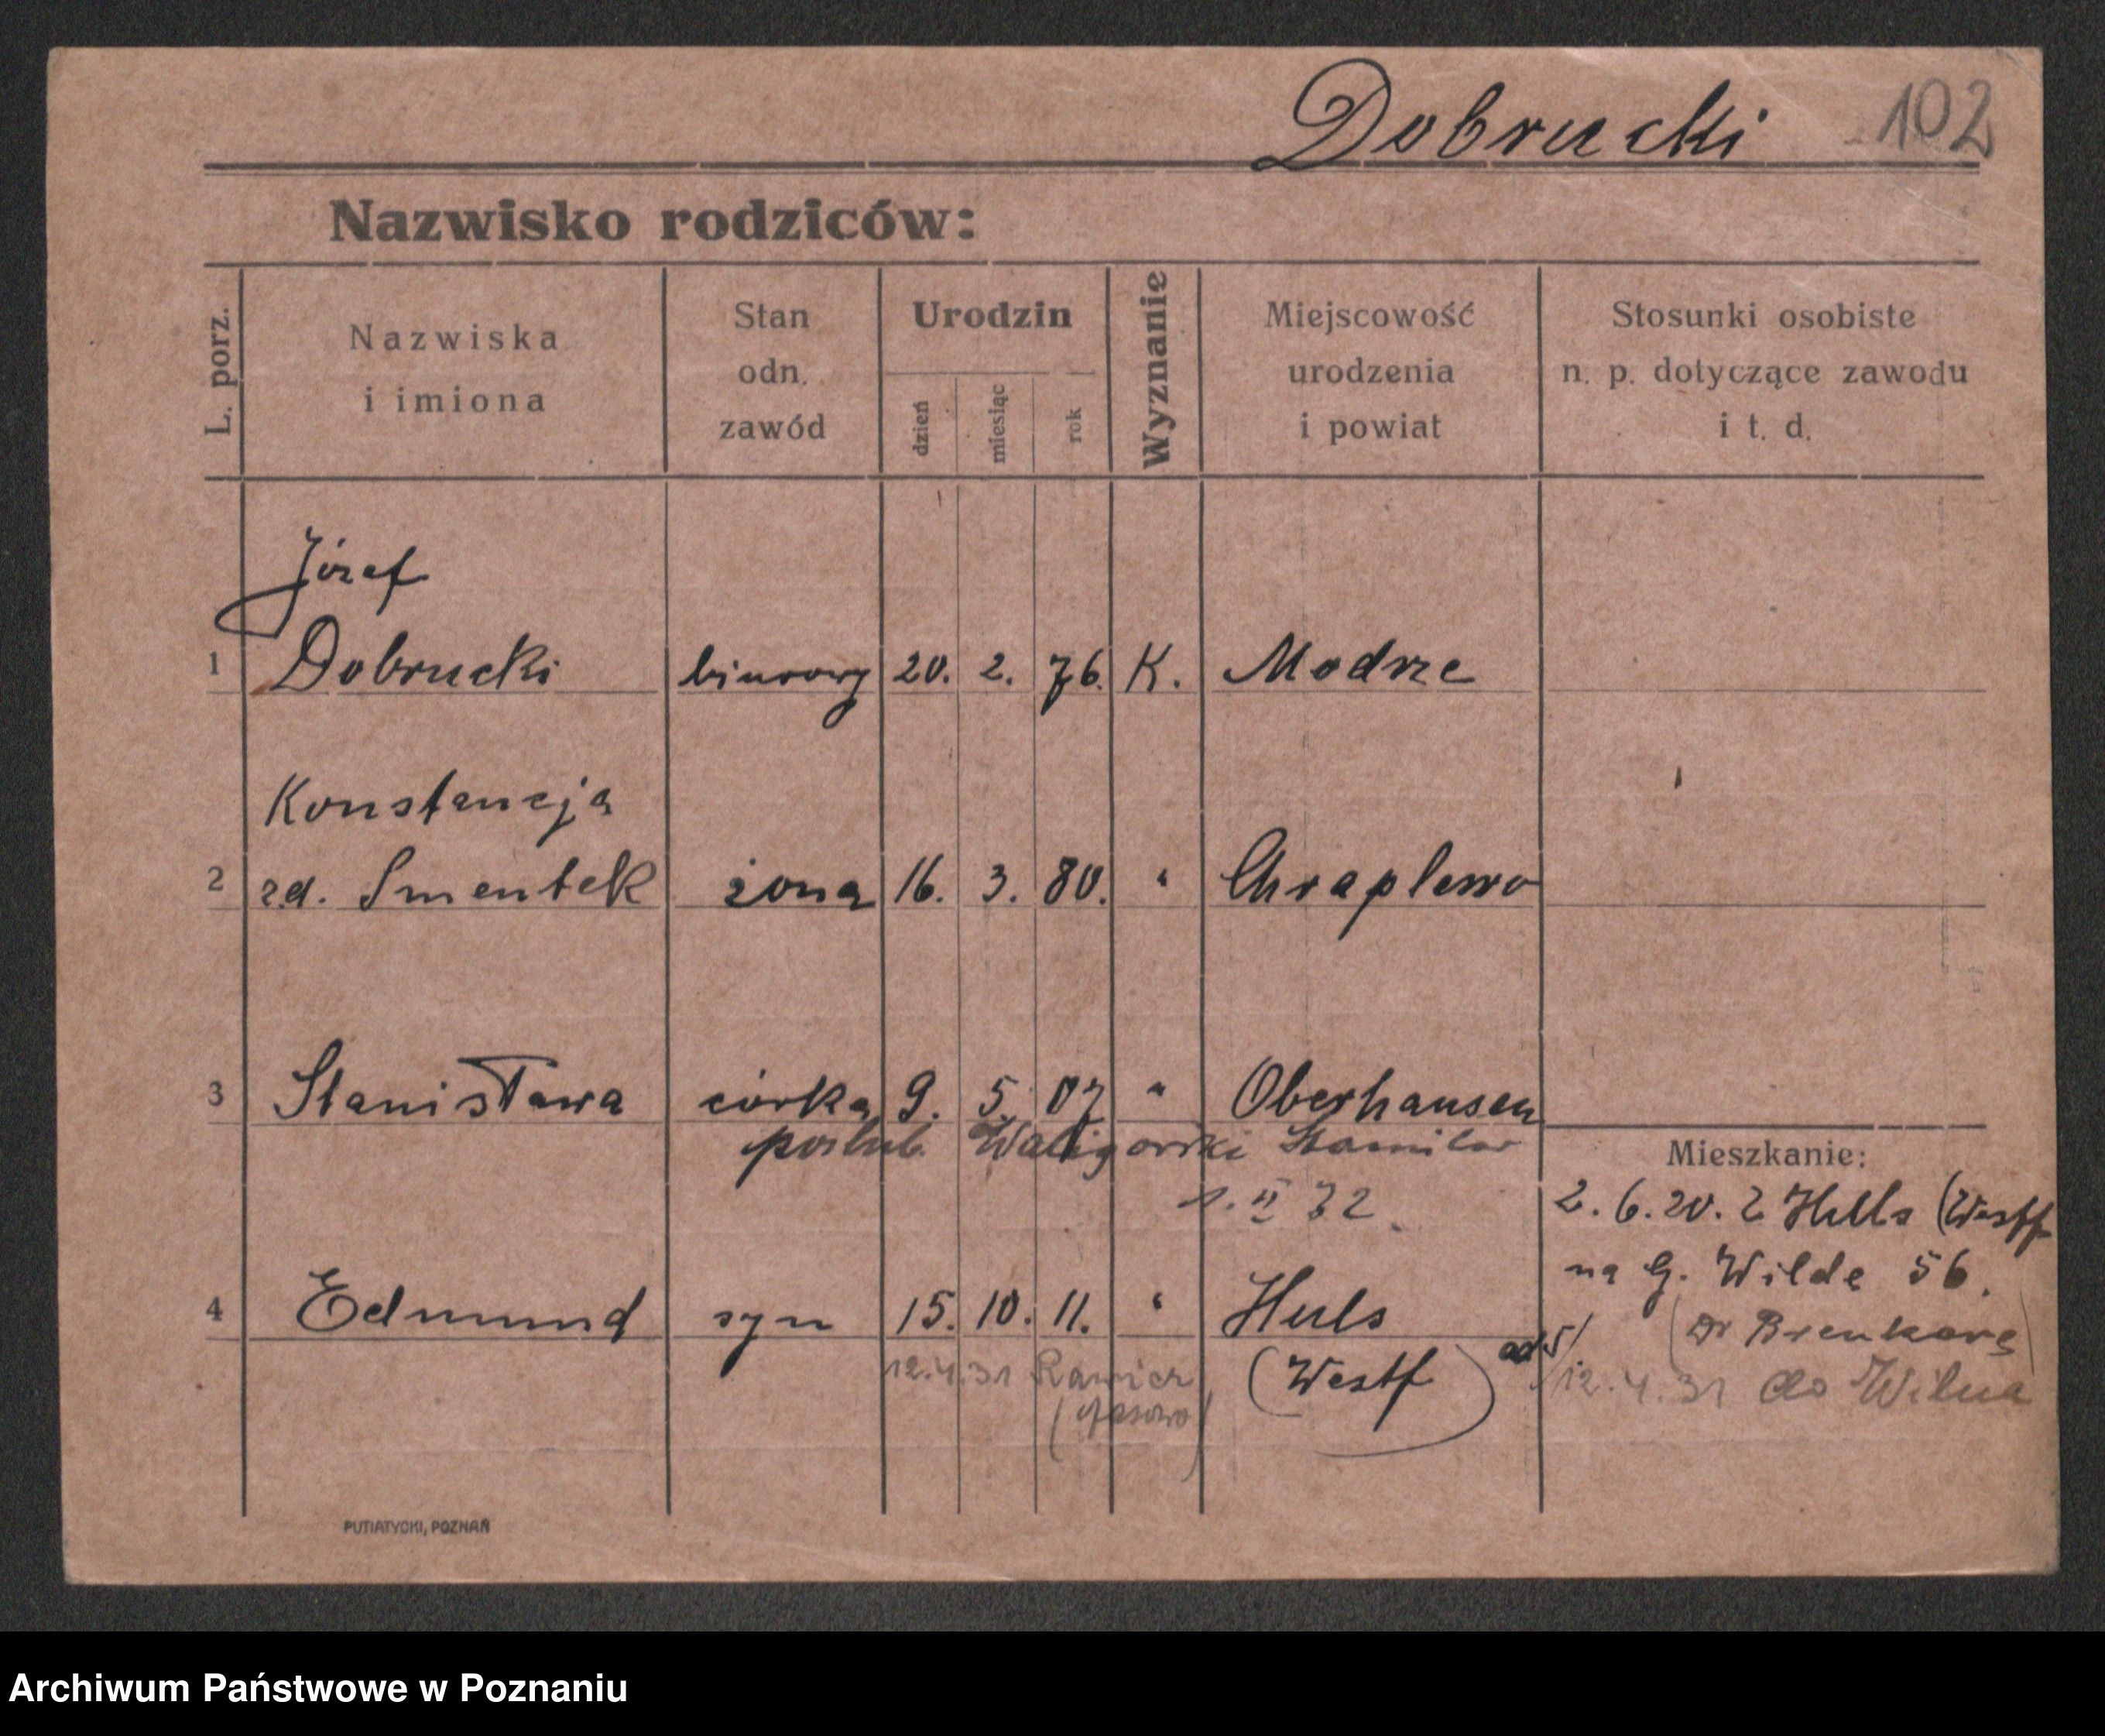 Dobrucki 102
Nazwisko rodziców:
L. porz.
Nazwiska
i imiona
Stan
odn.
zawód
Urodzin
dzień
miesiąc
rok
Wyznanie
Miejscowość
urodzenia
i powiat
Stosunki osobiste
n. p. dotyczące zawodu
i t. d.
Józef
1 Dobrucki biurowy 20. 2. 76. K. Modrze
Konstancja
2 zd. Smentek żona 16. 3. 80. " Chraplewo
3 Stanisława córka 9. 5. 07 " Oberhausen
poślub. Waligorski Stanisław
1. II 32.
Mieszkanie:
2. 6. 20. z Hüls (Westf
na G. Wilde 56.
4 Edmund syn 15. 10. 11. " Huls
(Westf)
(Dr Brenkarę)
12.4.31 Rawicz
12.4.31 do Wilna
PUTIATYCKI, POZNAŃ
Archiwum Państwowe w Poznaniu